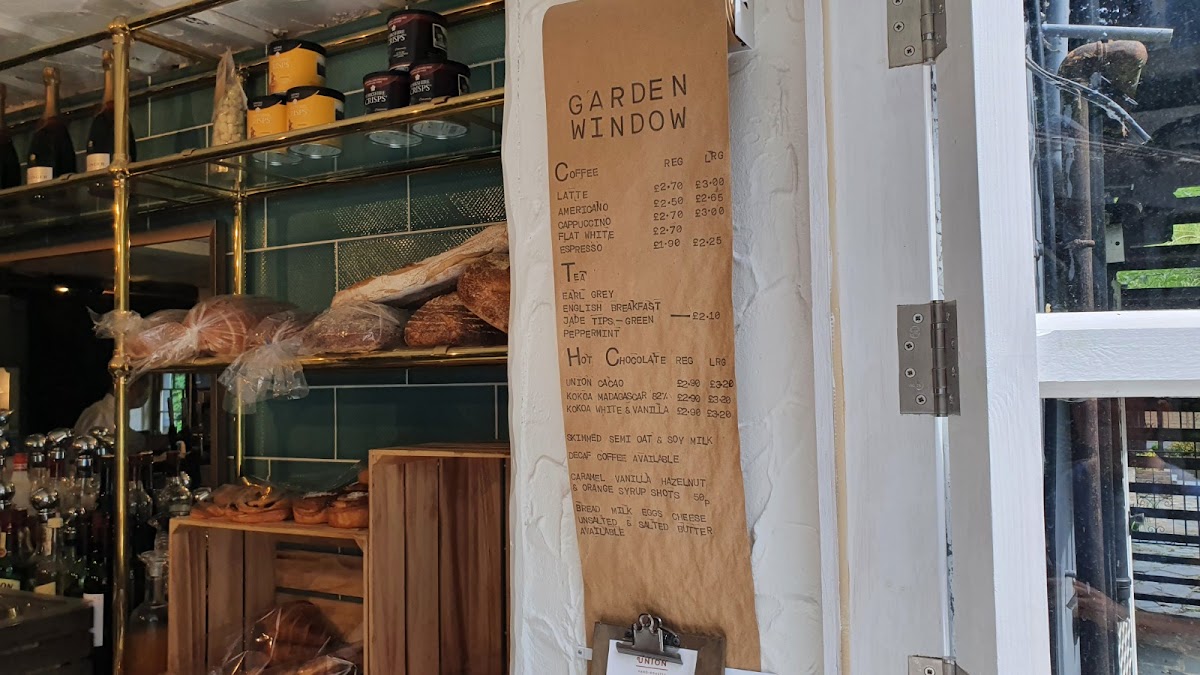 CRISPS
CRISPS
GARDEN
WINDOW
COFFEE REG LRG
LATTE £2.70 £3.00
AMERICANO £2.50 £2.65
CAPPUCCINO £2.70 £3.00
FLAT WHITE £2.70
ESPRESSO £1.90 £2.25
TEA
EARL GREY
ENGLISH BREAKFAST
JADE TIPS - GREEN — £2.10
PEPPERMINT
HOT CHOCOLATE REG LRG
UNION CACAO £2.90 £3.20
KOKOA MADAGASCAR 82% £2.90 £3.20
KOKOA WHITE & VANILLA £2.90 £3.20
SKIMMED SEMI OAT & SOY MILK
DECAF COFFEE AVAILABLE
CARAMEL VANILLA HAZELNUT
& ORANGE SYRUP SHOTS 50p
BREAD MILK EGGS CHEESE
UNSALTED & SALTED BUTTER
AVAILABLE
UNION